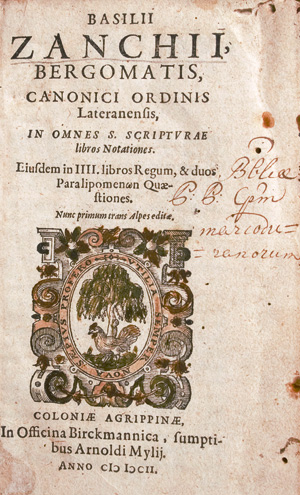 BASILII
ZANCHII,
BERGOMATIS,
CANONICI ORDINIS
Lateranensis,
IN OMNES S. SCRIPTVRAE
libros Notationes.
Eiusdem in IIII. libros Regum, & duos
Paralipomenωn Quæ-
stiones.
Nunc primum trans Alpes editæ.
Bibliæ
P. P.
marcodu-
ranorum
COLONIÆ AGRIPPINÆ,
In Officina Birckmannica, sumpti-
bus Arnoldi Mylij.
ANNO CIƆ IƆCII.